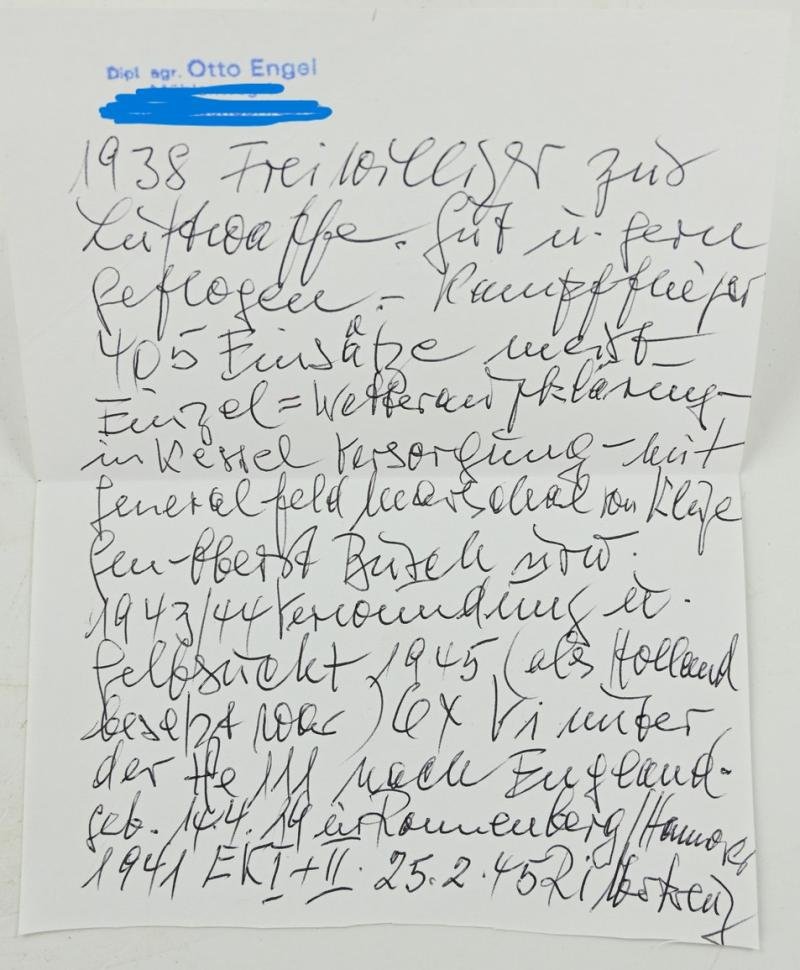 Dipl agr. Otto Engel
1938 Freiwilliger zur
Luftwaffe. Gut u. gern
geflogen - Kampfflieger
405 Einsätze meist
Einzel = Wetteraufklärung -
in Kessel Versorgung - mit
Generalfeldmarschal von Kluge
Gen-Oberst Busch usw.
1943/44 Verwundung u.
Gelbsucht 1945 (als Holland
besetzt war) 6x V1 unter
der He 111 nach England -
geb. 14.4.19 in Ronnenberg/Hannover
1941 EK I + II. 25.2.45 Ritterkreuz